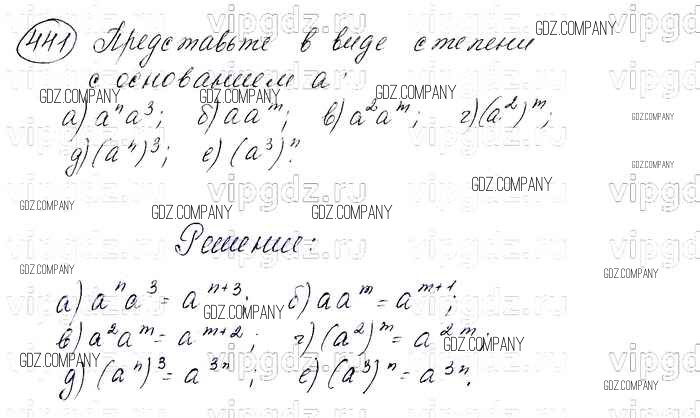 441 Представьте в виде степени
с основанием a:
а) aⁿa³; б) aaᵐ; в) a²aᵐ; г) (a²)ᵐ;
д) (aⁿ)³; е) (a³)ⁿ.
Решение:
а) aⁿa³ = aⁿ⁺³; б) aaᵐ = aᵐ⁺¹;
в) a²aᵐ = aᵐ⁺²; г) (a²)ᵐ = a²ᵐ;
д) (aⁿ)³ = a³ⁿ; е) (a³)ⁿ = a³ⁿ.
vipgdz.ru
GDZ.COMPANY